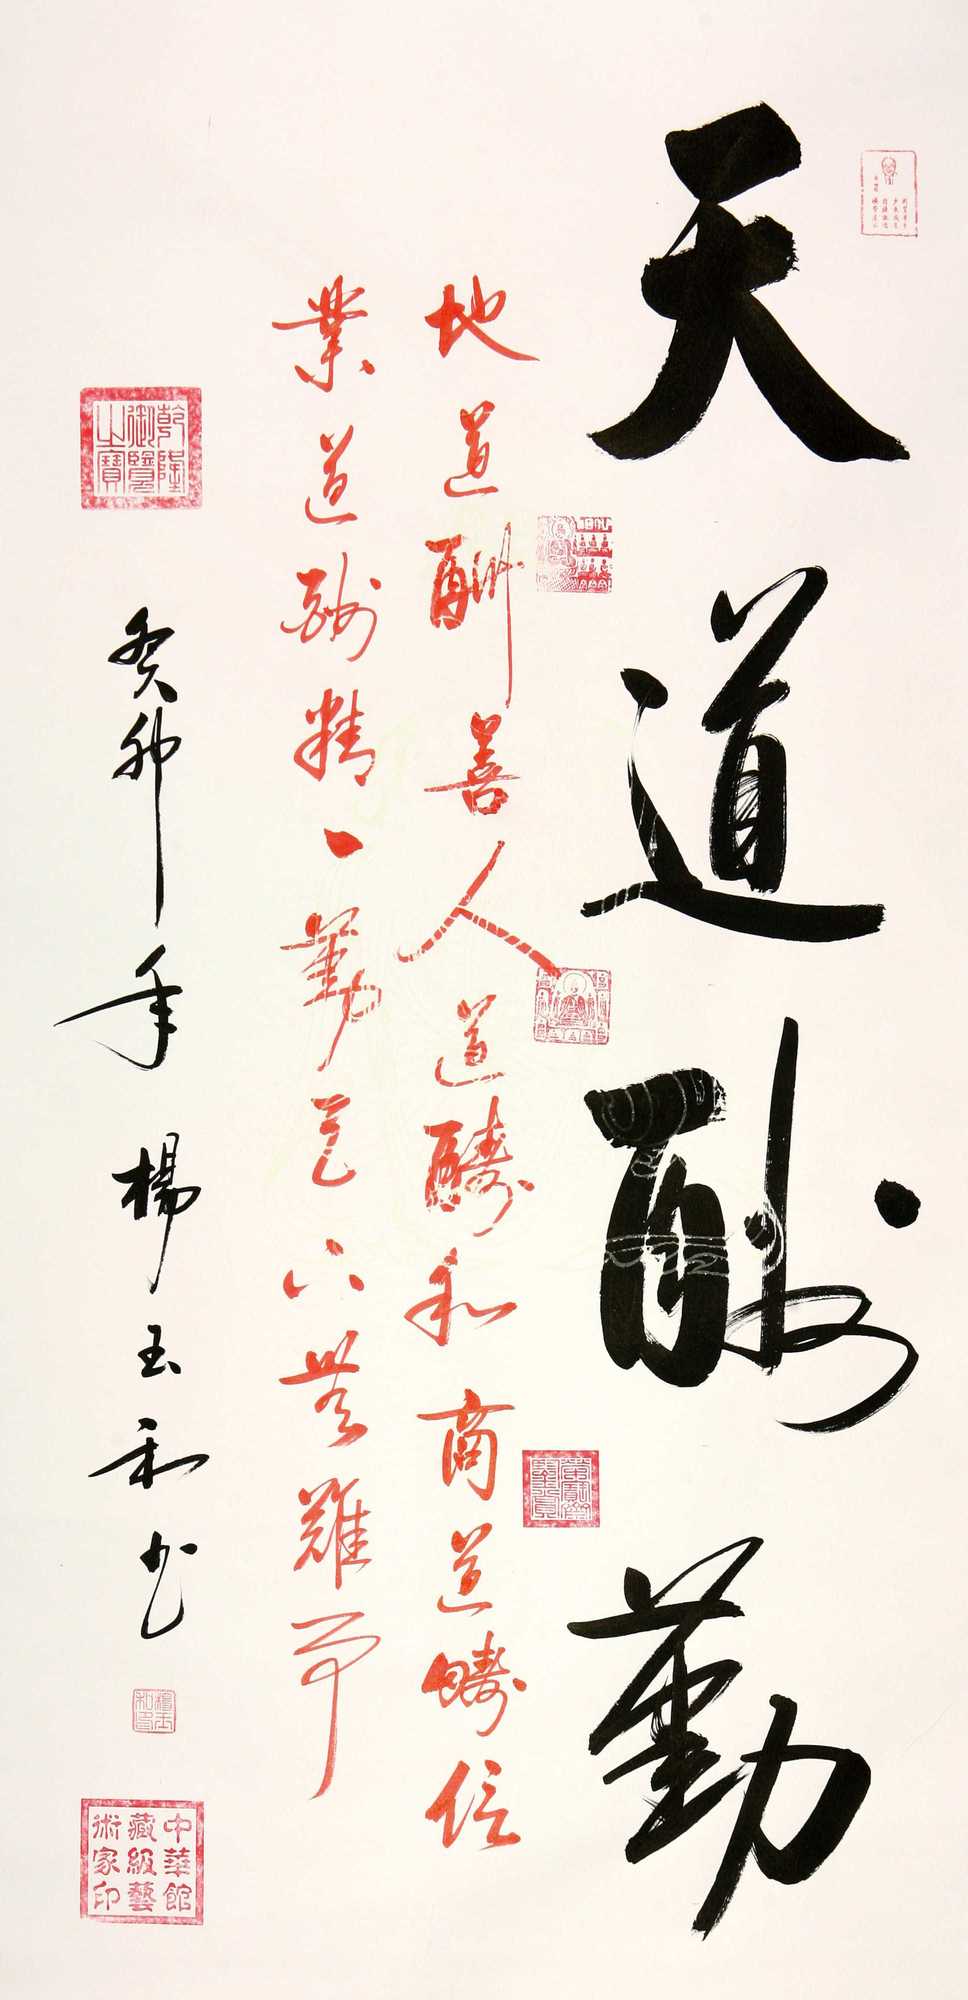 天道酬勤
地道酬善人道酬和商道酬信
業道酬精一勤天下無難事
癸卯年楊玉和書
乾隆御覽之寶
楊玉和印
中華館藏級藝術家印